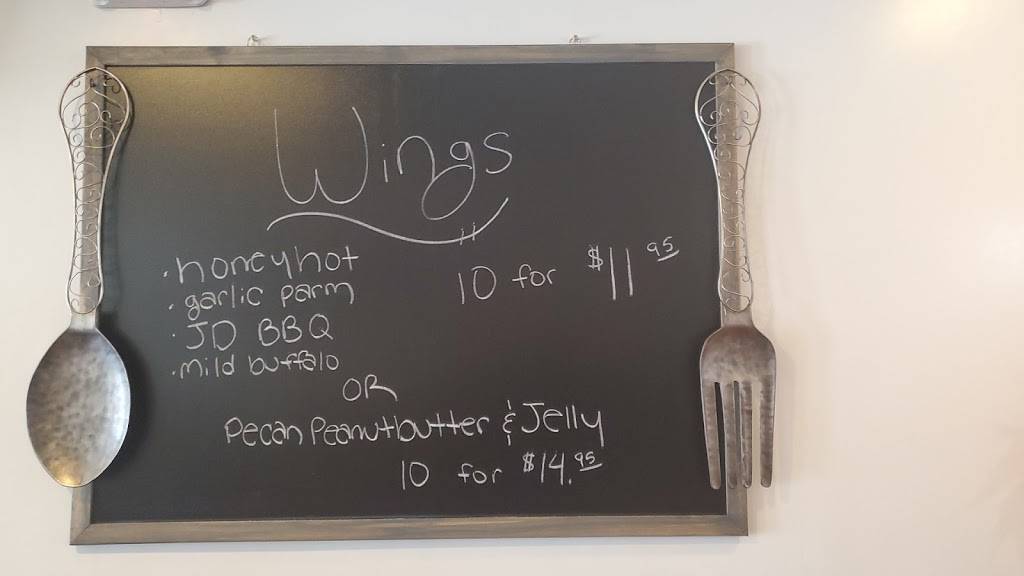 Wings
• honeyhot
• garlic parm
• JD BBQ
• mild buffalo
10 for $11 95
OR
Pecan Peanutbutter & Jelly
10 for $14.95